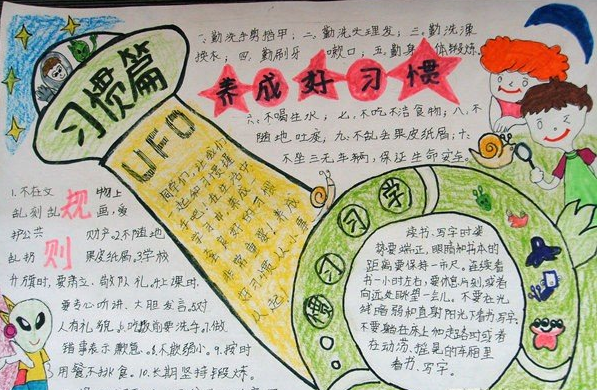 一、勤洗手剪指甲;二、勤洗头理发;三、勤洗澡
换衣;四、勤刷牙 嗽口;五、勤身体锻炼
养成好习惯
六、不喝生水;七、不吃不洁食物;八、不
随地吐痰;九、不乱丢果皮纸屑;十、
不坐三无车辆,保证生命安全。
习惯篇
UFO
同学们,让我们
养成
好习惯
从小
做起
规则
1.不在文物上
乱刻乱画,爱
护公共财产.2.不随地
乱扔果皮纸屑.3.学校
升旗时,要肃立、敬队礼.4.上课时
要专心听讲,大胆发言.5.对
人有礼貌.6.吃饭前要洗手.7.做
错事表示歉意.8.不欺弱小.9.按时
用餐不挑食.10.长期坚持锻炼。
学习习惯
读书、写字时姿
势要端正,眼睛和书本的
距离要保持一市尺。连续看
书一小时左右,要休息片刻,或者
向远处眺望一会儿。不要在光
线暗弱和直射阳光下看书、写字。
不要躺在床上和走路时或者
在动荡、摇晃的车厢里
看书、写字。